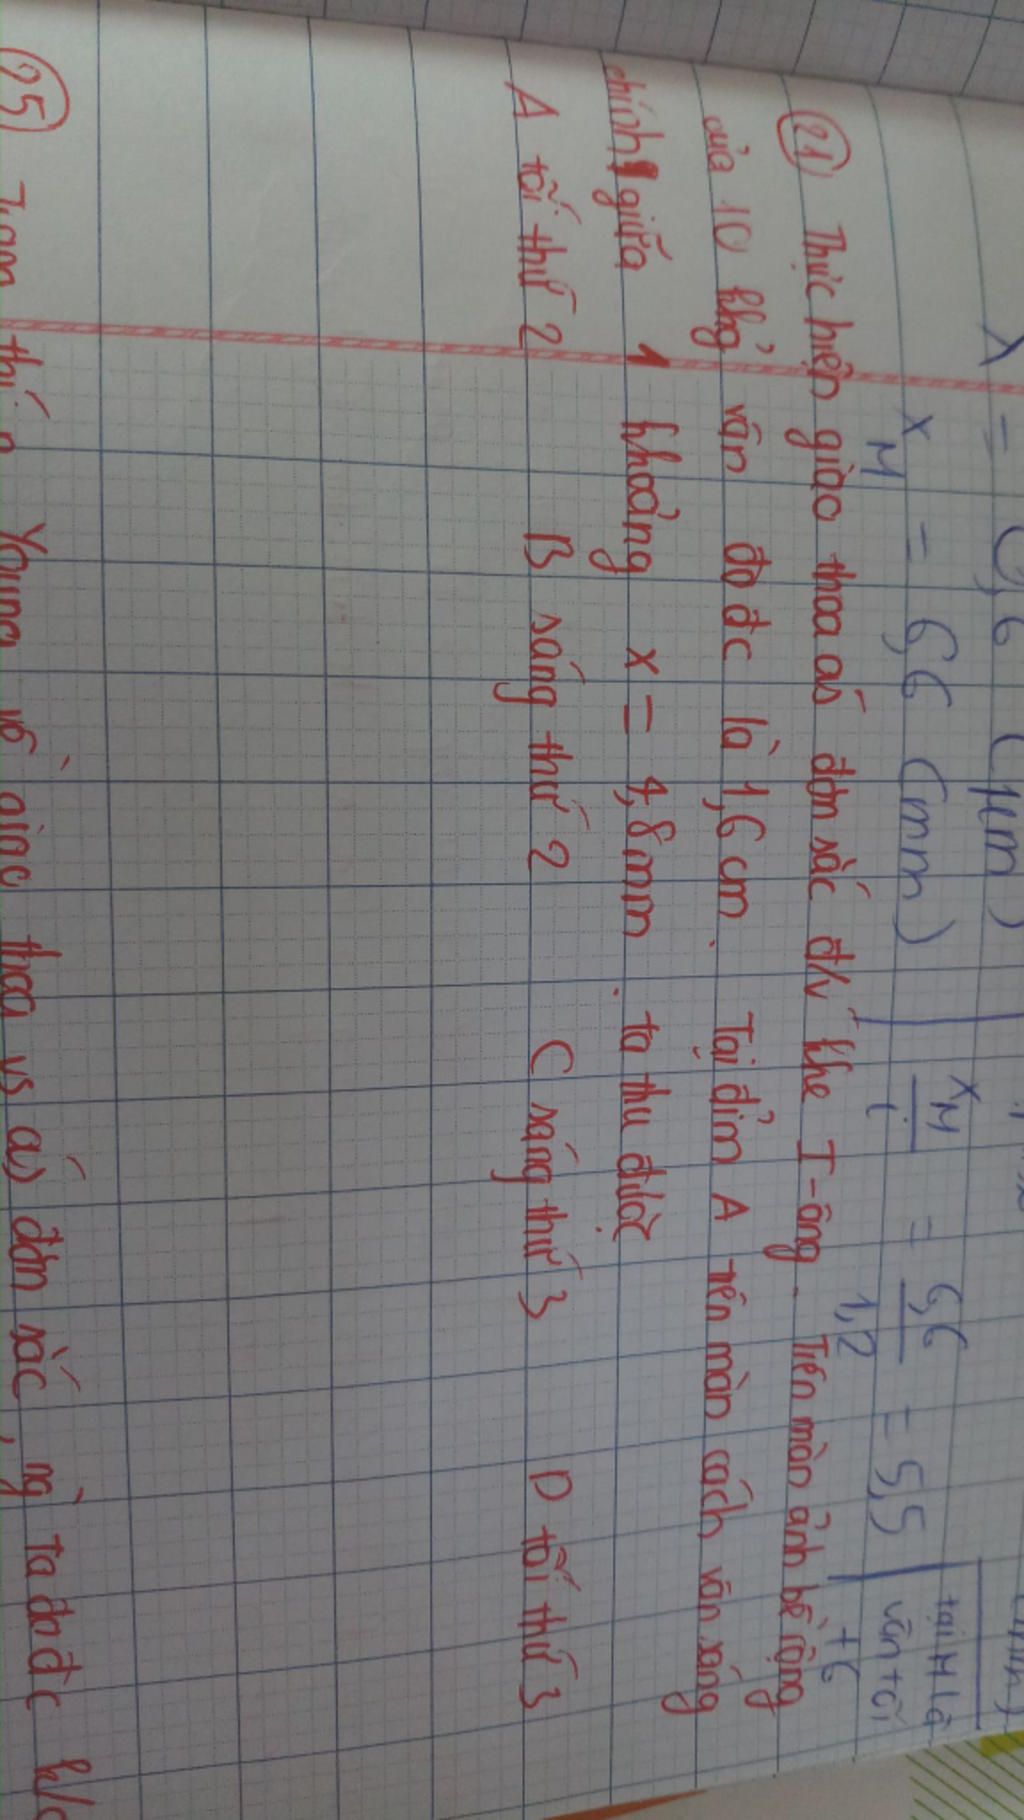 λ = 0,6 (μm)
x_M = 6,6 (mm)
x_M / i = 6,6 / 1,2 = 5,5
tại M là
vân tối
t6
21 Thực hiện giao thoa ás đơn sắc đ/v khe I-âng. Trên màn ảnh bề rộng
của 10 khỏ vân đo đc là 1,6 cm. Tại điểm A trên màn cách vân sáng
chính giữa 1 khoảng x = 4,8mm. ta thu được
A tối thứ 2 B sáng thứ 2 C sáng thứ 3 D tối thứ 3
25 Trong thí n Young về giao thoa vs ás đơn sắc, ng ta đo đc k/c